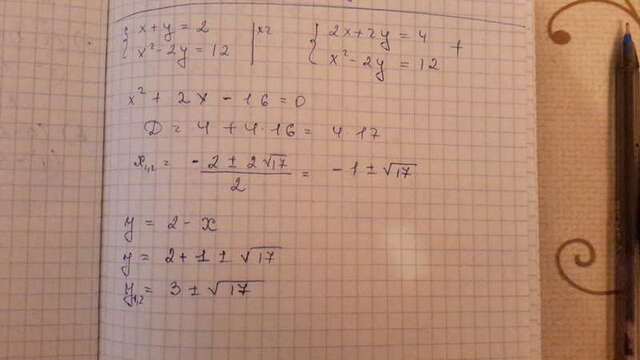 { x + y = 2 | ×2 { 2x + 2y = 4 +
{ x² - 2y = 12 { x² - 2y = 12
x² + 2x - 16 = 0
D = 4 + 4·16 = 4·17
x₁,₂ = (-2 ± 2√17)/2 = -1 ± √17
y = 2 - x
y = 2 + 1 ± √17
y₁,₂ = 3 ± √17